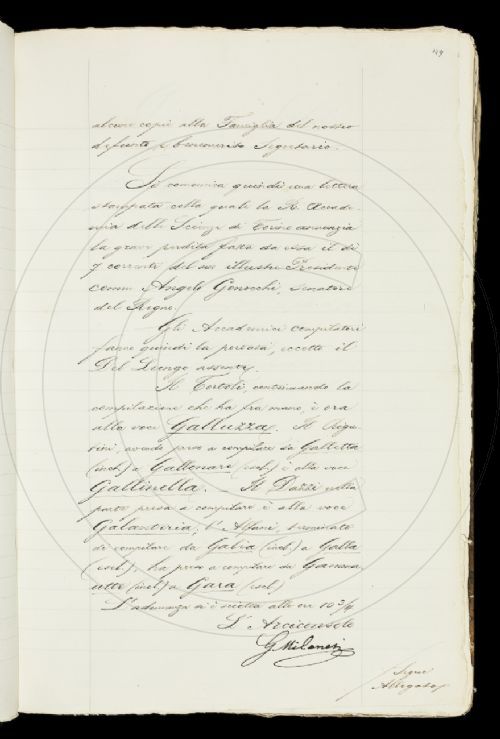 alcune copie alla Famiglia del nostro
defunto e benemerito Segretario.
Si comunica quindi una lettera
stampata colla quale la R. Accade-
mia delle Scienze di Torino annunzia
la grave perdita fatta da essa il dì
7 corrente del suo illustre Presidente
comm. Angelo Genocchi, senatore
del Regno.
Gli Accademici compilatori
fanno quindi la, eccetto il
Del Lungo assente.
Il Tortoli, continuando la
compilazione che ha fra mano, è ora
alla voce Galluzza. Il Rigu-
tini, avendo preso a compilare da Galletta
(incl.) a Gallonare (incl.) è alla voce
Gallinella. Il Dazzi nella
parte presa a compilare è alla voce
Galanteria. L'Alfani, terminato
di compilare da Gabia (incl.) a Galla
(escl.), ha preso a compilare da
(incl.) a Gara (escl.)
L'adunanza si è sciolta alle ore 10 3/4
L'Arciconsolo
G Milanesi
Segue
Allegato